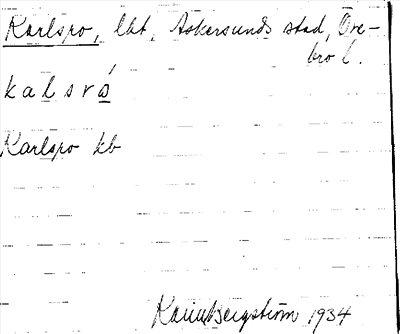 Karlsro, lht, Askersunds stad, Öre-
bro l.
kalsró
Karlsro kb
Karin Bergström 1934